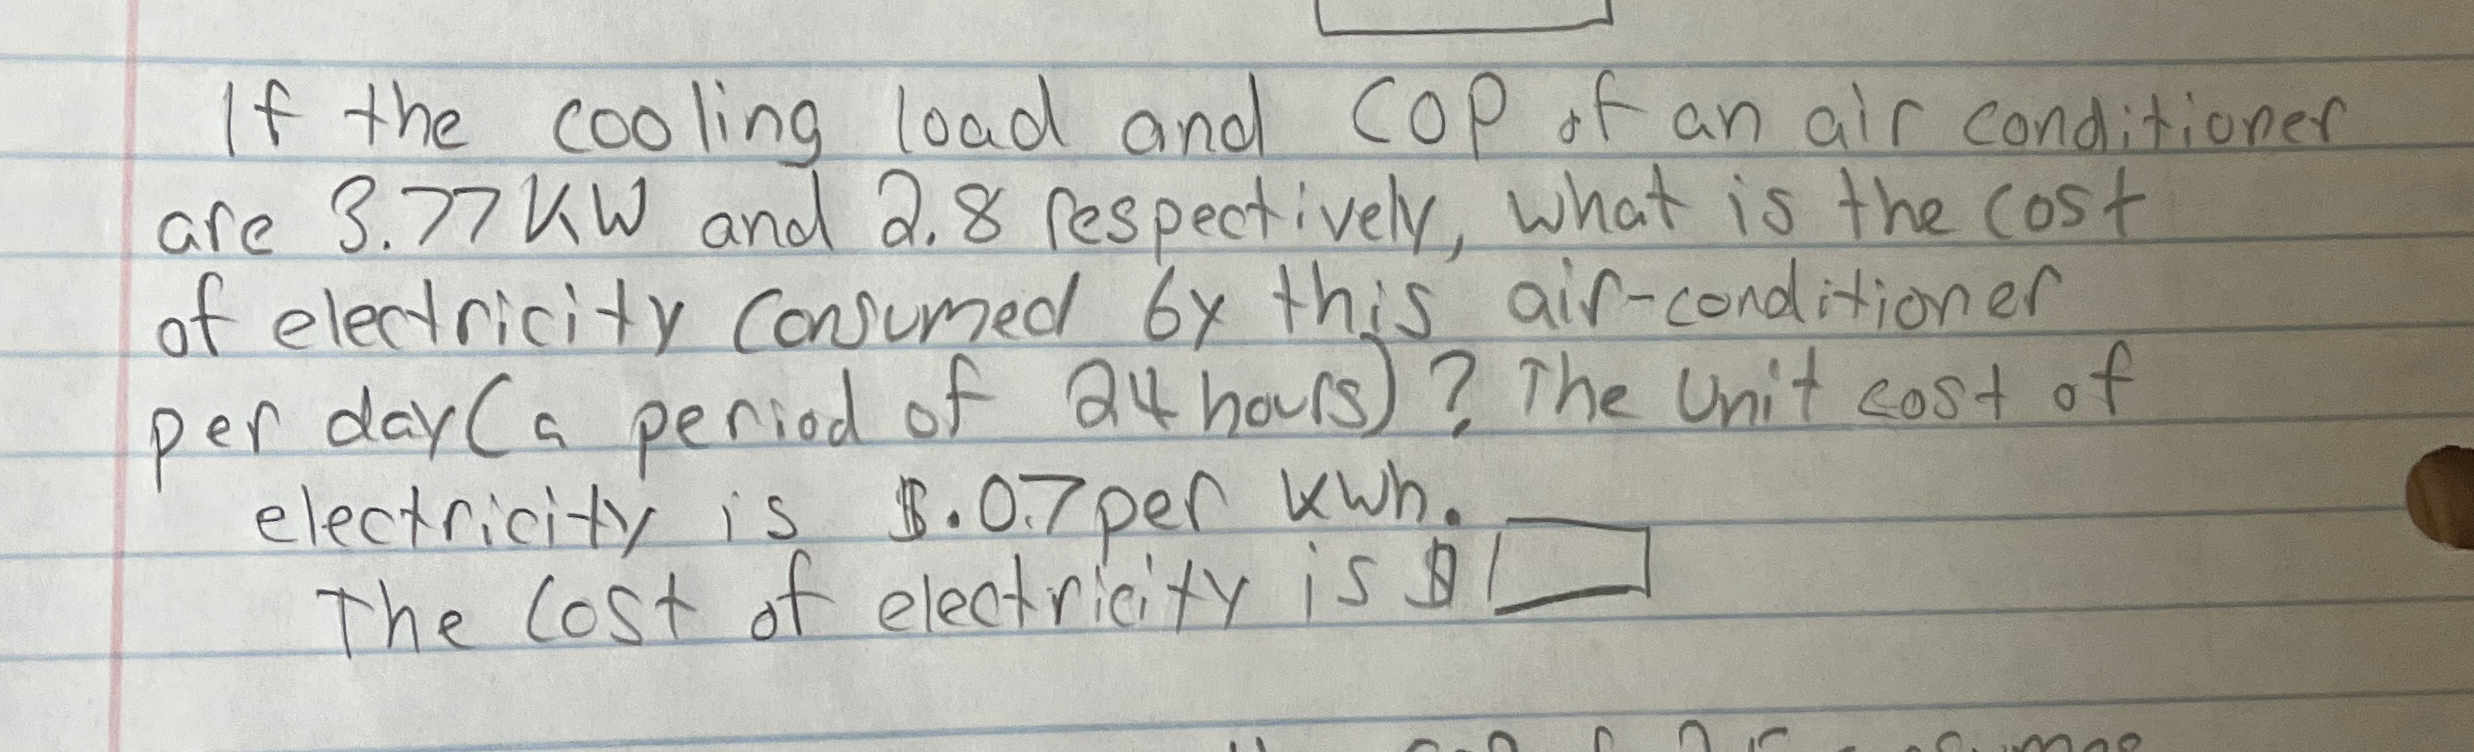 If the cooling load and COP of an air conditioner
are 3.77 KW and 2.8 respectively, what is the cost
of electricity consumed by this air-conditioner
per day (a period of 24 hours)? The Unit cost of
electricity is $.0.7 per kwh.
The cost of electricity is $